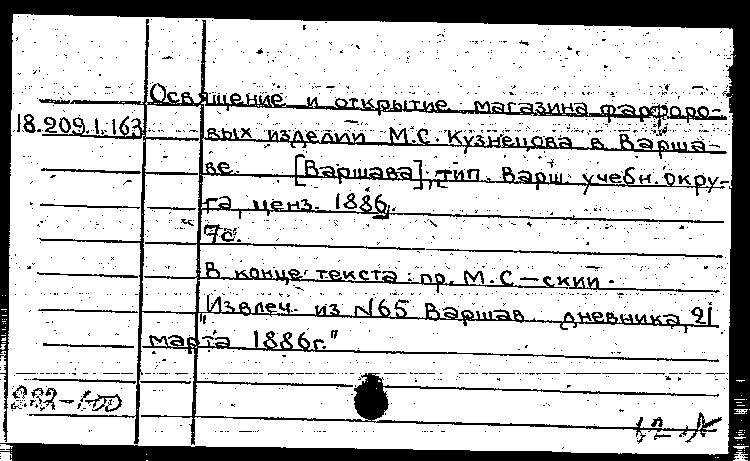 Освящение и открытие магазина фарфоро-
18.209.1.163 вых изделии М.С. Кузнецова в Варша-
ве. [Варшава], тип. Варш. учебн. окру-
га, ценз. 1886.
7с.
В конце текста: пр. М.С–скии.
"Извлеч. из N65 Варшав. дневника, 21
марта 1886г."
282-100